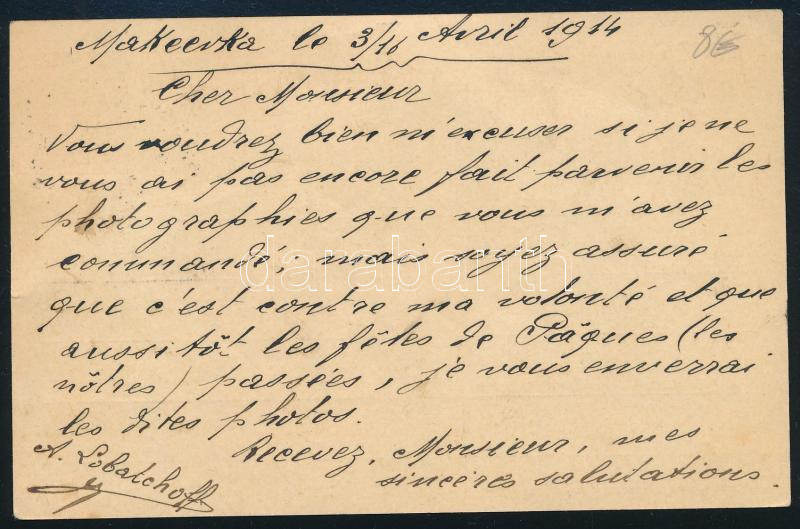 Makeevka le 3/16 Avril 1914
Cher Monsieur
Vous voudrez bien m'excuser si je ne
vous ai pas encore fait parvenir les
photographies que vous m'avez
commandé, mais soyez assuré
que c'est contre ma volonté et que
aussitôt les fêtes de Pâques (les
nôtres) passées, je vous enverrai
les dites photos.
Recevez, Monsieur, mes
sincères salutations.
A. Lobatchoff
darabanth